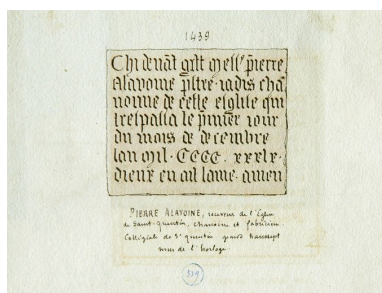 1439
Chi devāt gist mess' pierre
Alavoine p̄stre iadis cha
noinne de ceste esglise qui
trespassa le p̄mier iour
du mois de decembre
lan mil · CCCC · xxxix ·
dieux en ait lame · amen
PIERRE ALAVOINE, receveur de l'Église
de Saint-quentin, chanoine et fabricien.
Collégiale de St quentin grand transept
mur de l'horloge.
339